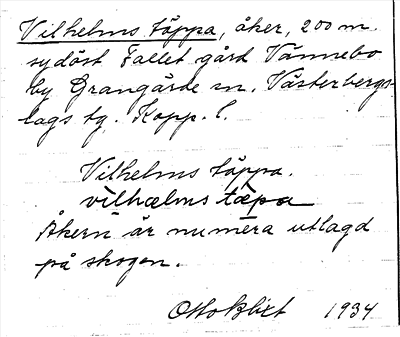 Vilhelms täppa, åker, 200 m.
sydöst Fallet gård Vännebo
by Grangärde sn. Västerbergs-
lags tg. Kopp. l.
Vilhelms täppa.
vilhælms tæpa
Åkern är numera utlagd
på skogen.
Otto Blixt 1934